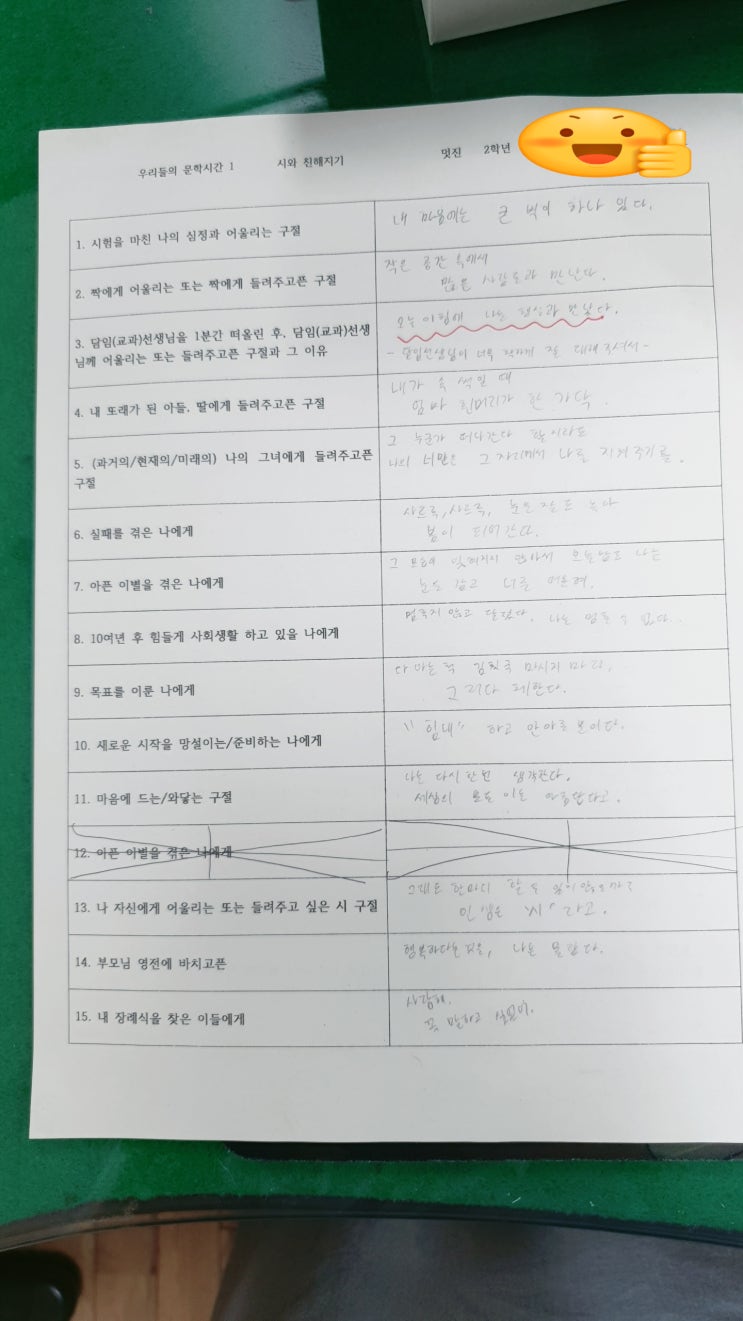 우리들의 문학시간 1 시와 친해지기 멋진 2학년
1. 시험을 마친 나의 심정과 어울리는 구절
내 마음에는 큰 벽이 하나 있다.
2. 짝에게 어울리는 또는 짝에게 들려주고픈 구절
작은 공간 속에서
많은 사람들과 만난다.
3. 담임(교과)선생님을 1분간 떠올린 후, 담임(교과)선생
님께 어울리는 또는 들려주고픈 구절과 그 이유
오늘 아침에 나는 천사를 만났다.
- 담임선생님이 너무 착하게 잘 대해주셔서 -
4. 내 또래가 된 아들, 딸에게 들려주고픈 구절
내가 속 썩일 때
엄마 흰머리가 한 가닥.
5. (과거의/현재의/미래의) 나의 그녀에게 들려주고픈
구절
그 누군가 떠나간다 할이라도
나의 너만은 그 자리에서 나를 지켜주기를.
6. 실패를 겪은 나에게
사르륵, 사르륵, 눈도 녹다
봄이 되어간다.
7. 아픈 이별을 겪은 나에게
그 모습이 잊혀지지 않아서 오늘밤도 나는
눈을 감고 너를 떠올려.
8. 10여년 후 힘들게 사회생활 하고 있을 나에게
멈추지 않고 달렸다. 나는 멈출 수 없다.
9. 목표를 이룬 나에게
다 아는 척 김칫국 마시지 마라,
그러다 체한다.
10. 새로운 시작을 망설이는/준비하는 나에게
"힘내" 하고 안아주 보이다.
11. 마음에 드는/와닿는 구절
나는 다시 한번 생각한다.
세상의 모든 이는 아름답다고.
12. 아픈 이별을 겪은 나에게
13. 나 자신에게 어울리는 또는 들려주고 싶은 시 구절
그래도 한마디 할 수 있지 않을까?
인생은 "시" 라고.
14. 부모님 영전에 바치고픈
행복하다는 것을, 나는 몰랐다.
15. 내 장례식을 찾은 이들에게
사랑해.
꼭 말하고 싶었어.